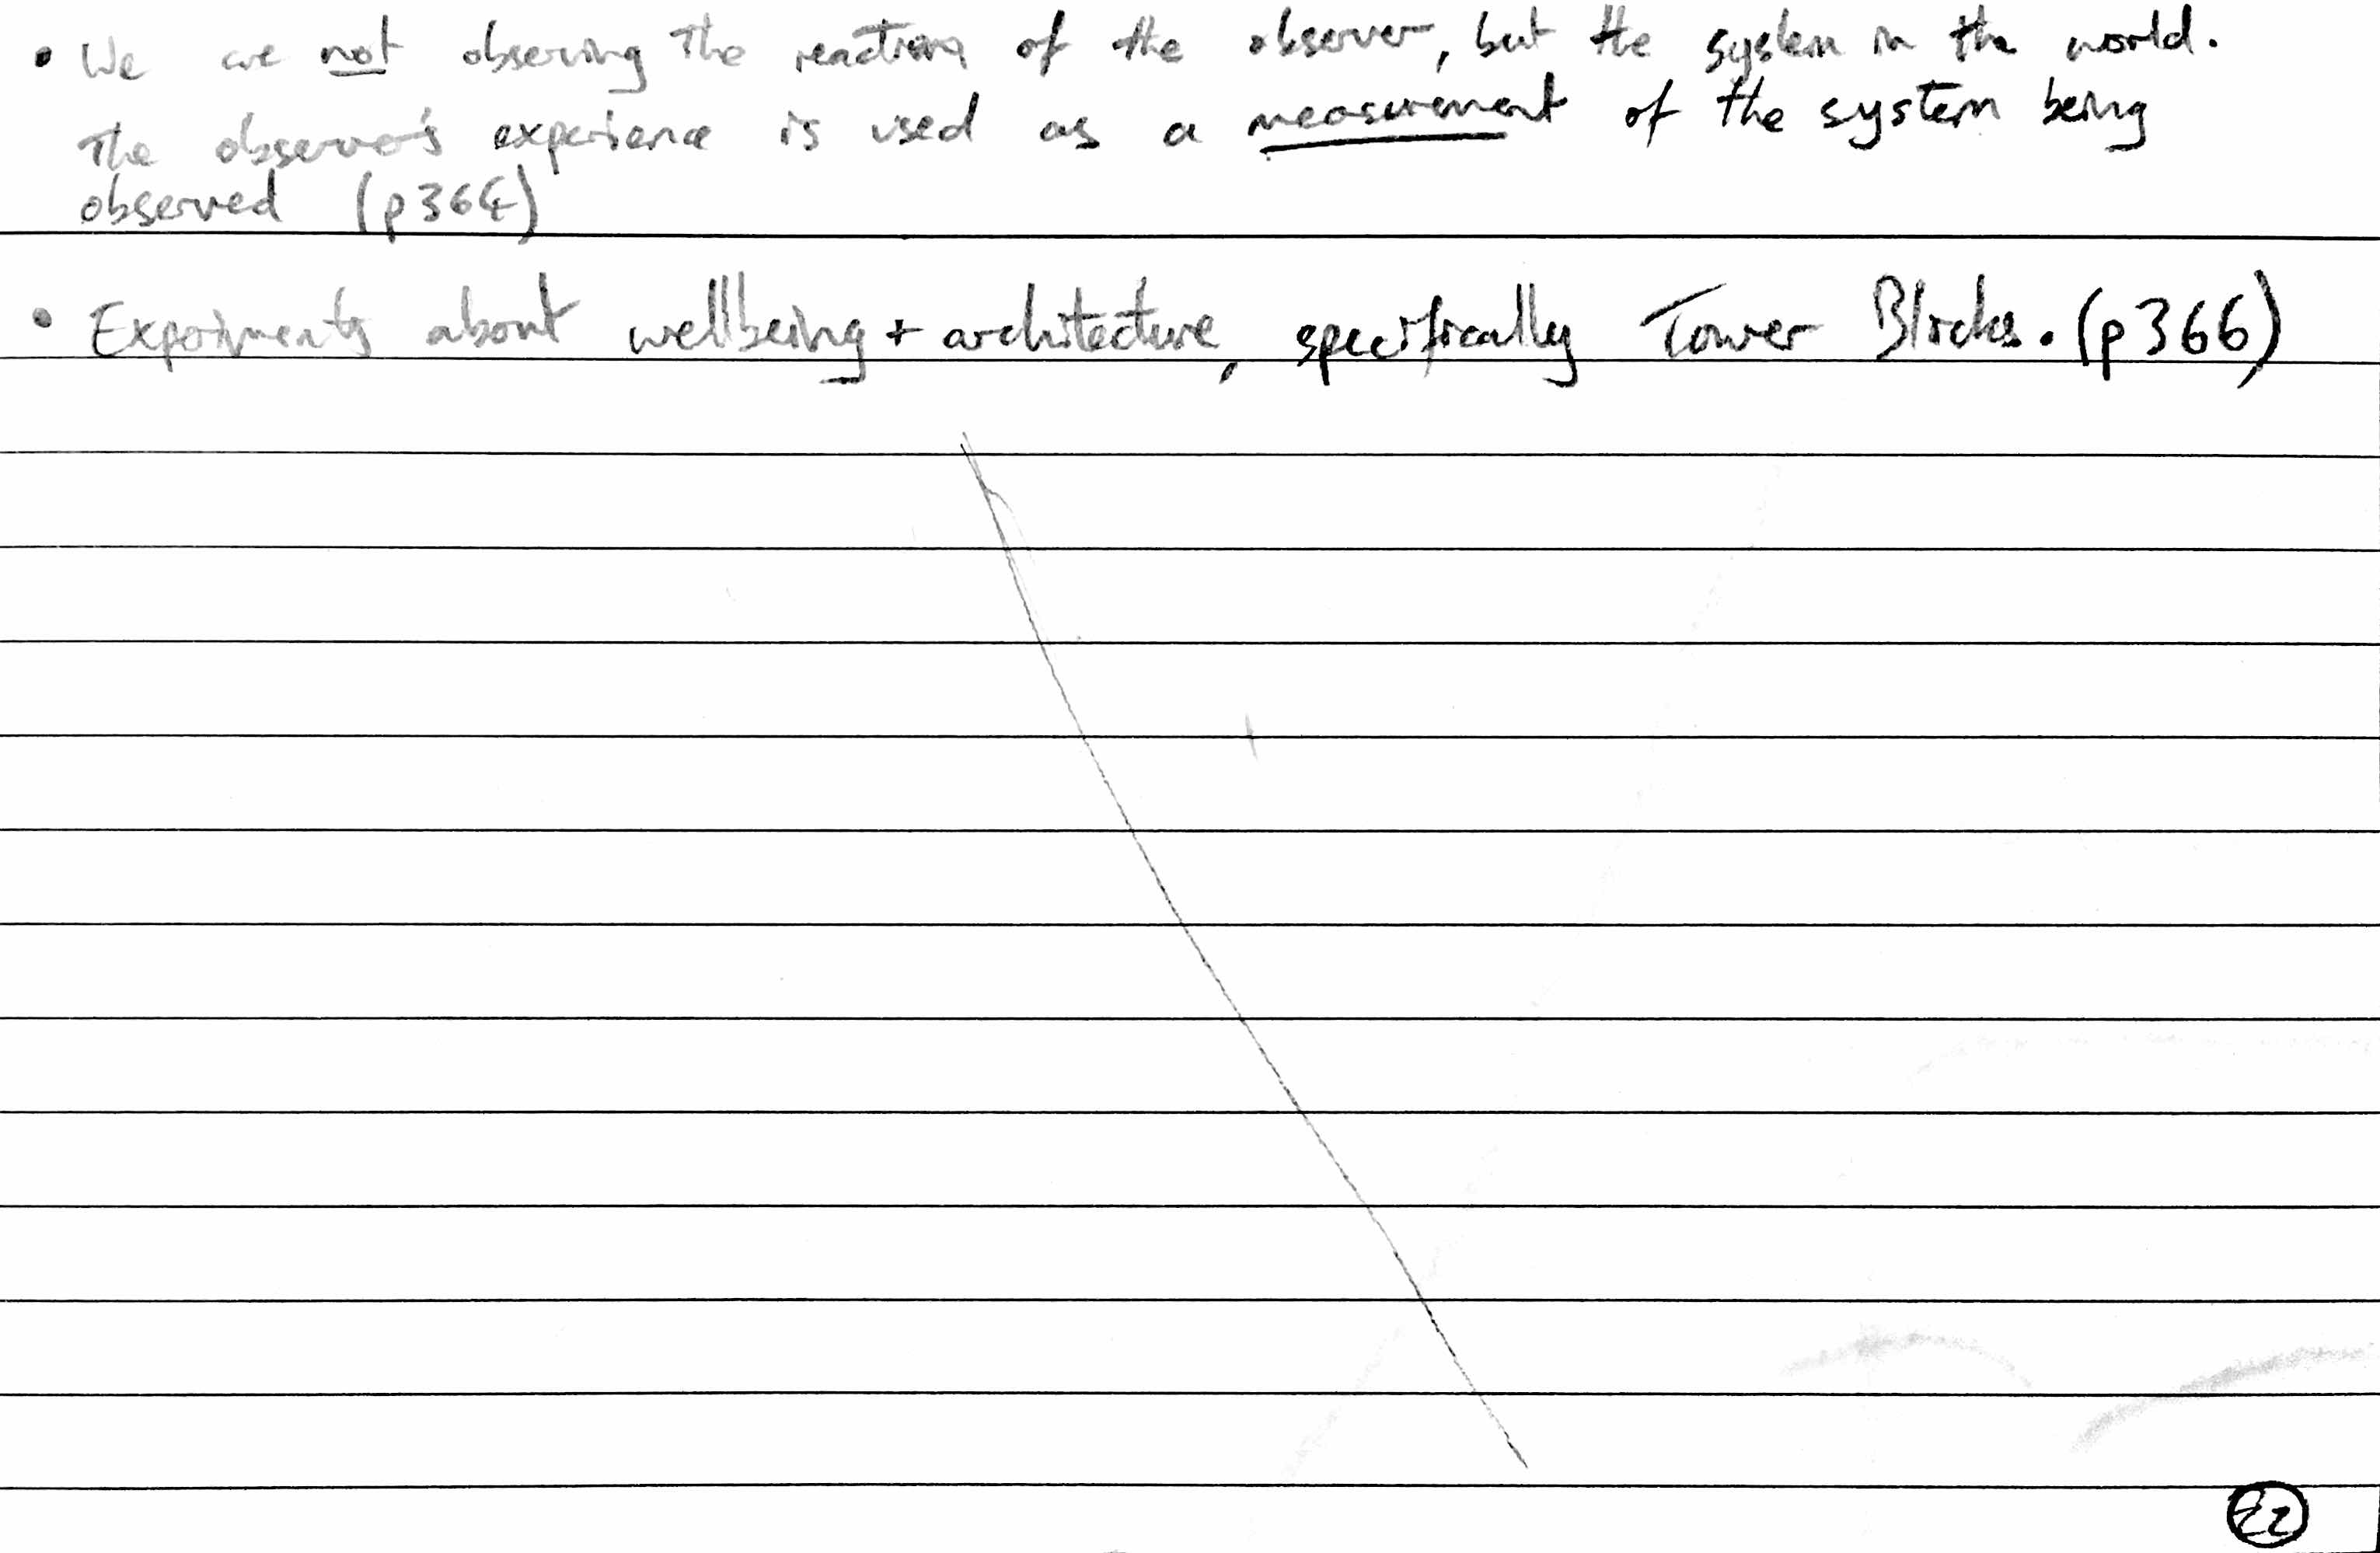 • We are not observing the reactions of the observer, but the system in the world.
The observer's experience is used as a measurement of the system being
observed (p364)
• Experiments about wellbeing + architecture, specifically Tower Blocks. (p366)
22